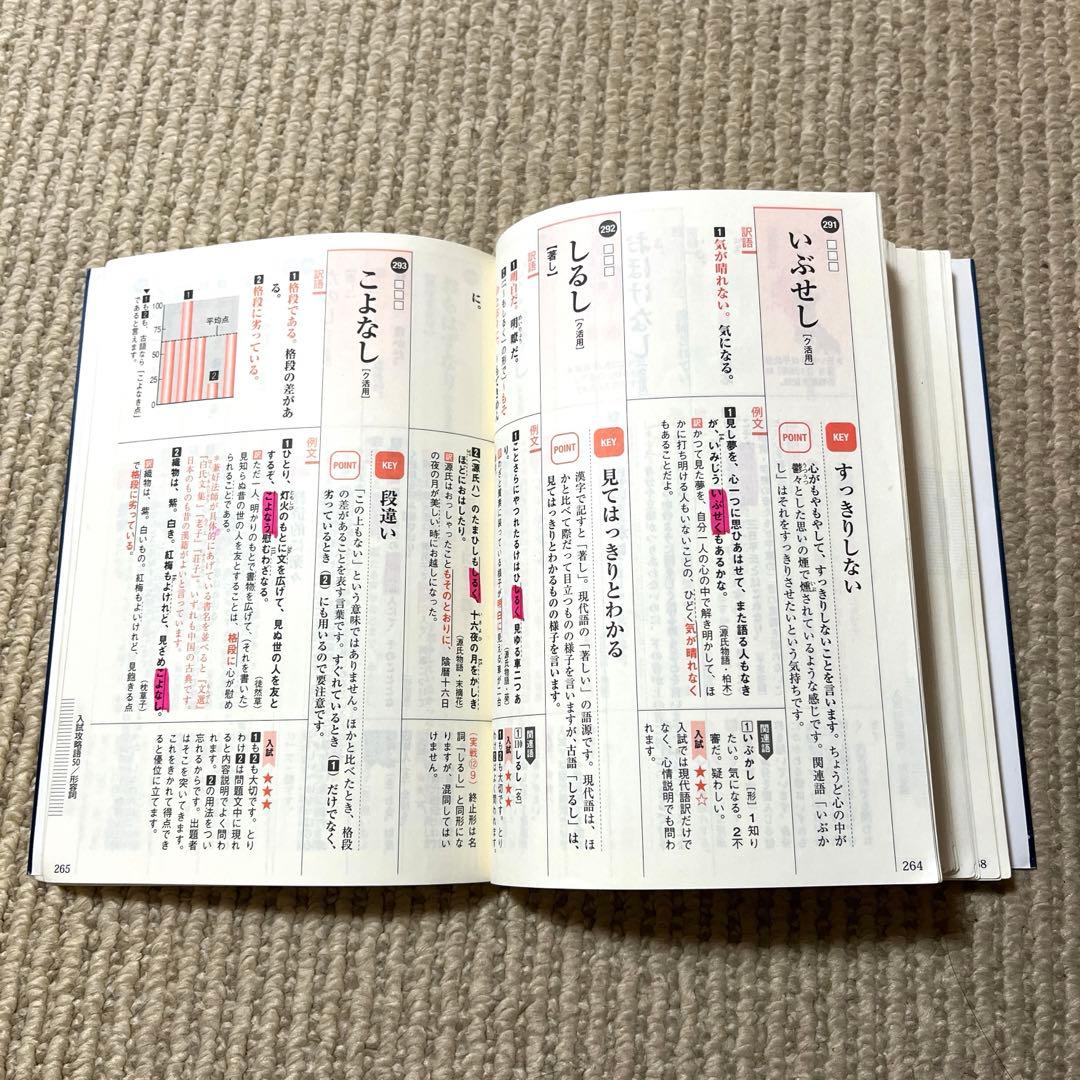 291
いぶせし[ク活用]
訳語
1気が晴れない。気になる。
KEY
すっきりしない
POINT
心がもやもやして、すっきりしないことを言います。ちょうど心の中が
鬱々とした思いの煙で燻されているような感じです。関連語「いぶか
し」はそれをすっきりさせたいという気持ちです。
例文
1見し夢を、心一つに思ひあはせて、また語る人もなき
が、いみじういぶせくもあるかな。
(源氏物語・柏木)
訳かつて見た夢を、自分一人の心の中で解き明かして、ほ
かに打ち明ける人もいないことの、ひどく気が晴れなく
もあることだよ。
関連語
1いぶかし[形] 1知り
たい。気になる。2不
審だ。疑わしい。
入試★★☆
入試では現代語訳だけで
なく、心情説明でも問わ
れます。
292
しるし[ク活用]
【著し】
訳語
1明白だ。明瞭だ。
KEY
見てはっきりとわかる
POINT
漢字で記すと「著し」。現代語の「著しい」の語源です。現代語は、ほ
かと比べて際だって目立つものの様子を言いますが、古語「しるし」は、
見てはっきりとわかるものの様子を言います。
例文
1ことさらにやつれたるけはひしるく見ゆる車二つあ
り。
(源氏物語・葵)
関連語
1110しるし[名]
入試★★★
264
に。
2(源氏ハ)のたまひしもしるく、十六夜の月をかしき
ほどにおはしたり。
(源氏物語・末摘花)
訳源氏はおっしゃったこともそのとおりに、陰暦十六日
の夜の月が美しい時にお越しになった。
(実戦⑫⑨) 終止形は名
詞「しるし」と同形にな
りますが、混同してはい
けません。
293
こよなし[ク活用]
訳語
1格段である。格段の差があ
る。
2格段に劣っている。
100
75
50
25
0
平均点
1
2
▼1も2も、古語なら「こよなき点」
であると言えます。
KEY
段違い
POINT
「この上もない」という意味ではありません。ほかと比べたとき、格段
の差があることを表す言葉です。すぐれているとき(1)だけでなく、
劣っているとき(2)にも用いるので要注意です。
例文
1ひとり、灯火のもとに文を広げて、見ぬ世の人を友と
するぞ、こよなう慰むわざなる。
(徒然草)
訳ただ一人、明かりのもとで書物を広げて、(それを書いた)
見知らぬ昔の世の人を友とすることは、格段に心が慰め
られることである。
*兼好法師が具体的にあげている書名を並べると『文選』
『白氏文集』『老子』『荘子』。いずれも中国の古典です。
日本のものも昔の漢籍がよいと言っています。
2織物は、紫。白き。紅梅もよけれど、見ざめこよなし。
(枕草子)
訳織物は、紫。白いもの。紅梅もよいけれど、見飽きる点
で格段に劣っている。
入試★★★
1も2も大切です。とり
わけ2は問題文中に現れ
ると内容説明でよく問わ
れます。2の用法をつい
忘れるからです。出題者
はそこを突いてきます。
これをきかれて得点でき
ると優位に立てます。
入試攻略語50/形容詞
265